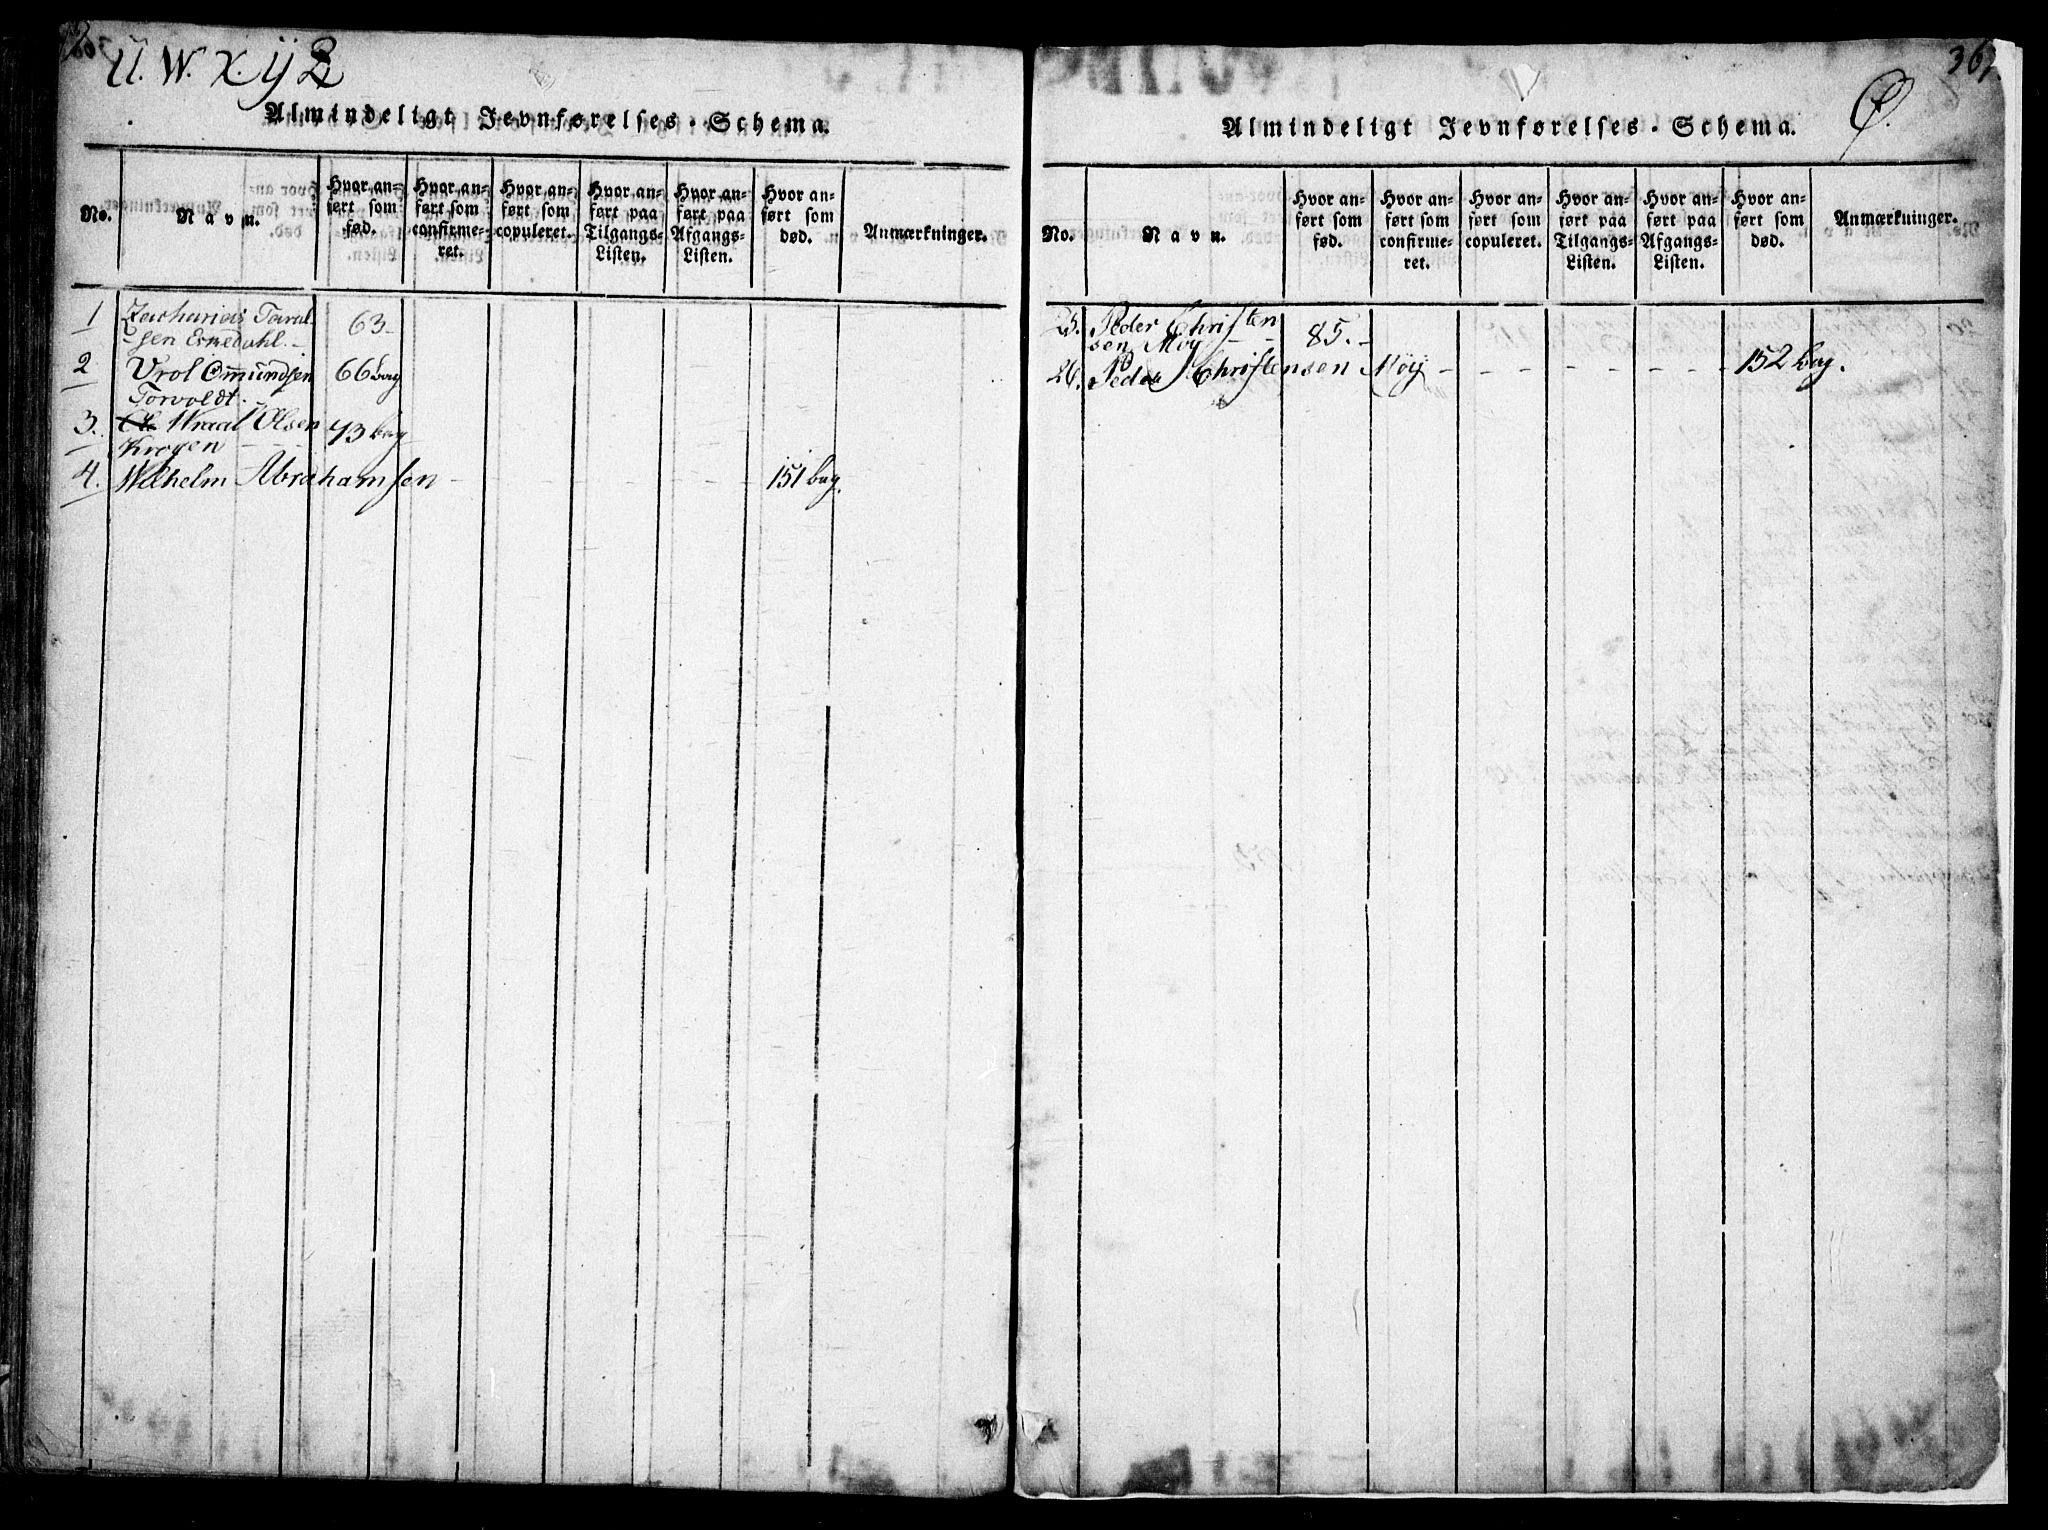 U. W. X. Y Z
Almindeligt Jevnførelses-Schema.
No.
Navn.
Hvor an-
ført som
fød.
Hvor an-
ført som
confirme-
ret.
Hvor an-
ført som
copuleret.
Hvor an-
ført paa
Tilgangs-
Listen.
Hvor an-
ført paa
Afgangs-
Listen.
Hvor an-
ført som
død.
Anmærkninger.
1 Zacharias Taral- 63
sen Eskedahl.
2 Urol Omundsen 66 bag
Torvoldt.
3. Wraal Olsen 73 bag
Krogen
4. Wilhelm Abrahamsen 151 bag.
367.
P.
Almindeligt Jevnførelses-Schema.
No.
Navn.
Hvor an-
ført som
fød.
Hvor an-
ført som
confirme-
ret.
Hvor an-
ført som
copuleret.
Hvor an-
ført paa
Tilgangs-
Listen.
Hvor an-
ført paa
Afgangs-
Listen.
Hvor an-
ført som
død.
Anmærkninger.
25. Peder Christen
sen Moy 85.
26. Peder Christensen Moy 152 bag.